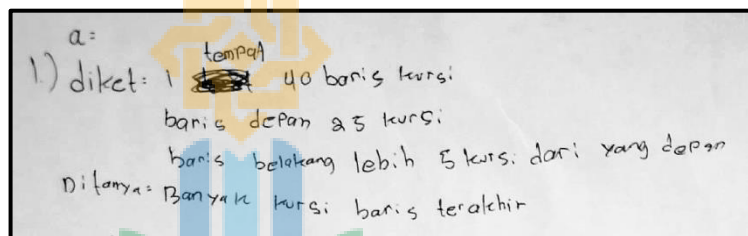 a:
1.) diket: 1 tempat 40 baris kursi
baris depan 25 kursi
baris belakang lebih 5 kursi dari yang depan
Ditanya: Banyak kursi baris terakhir